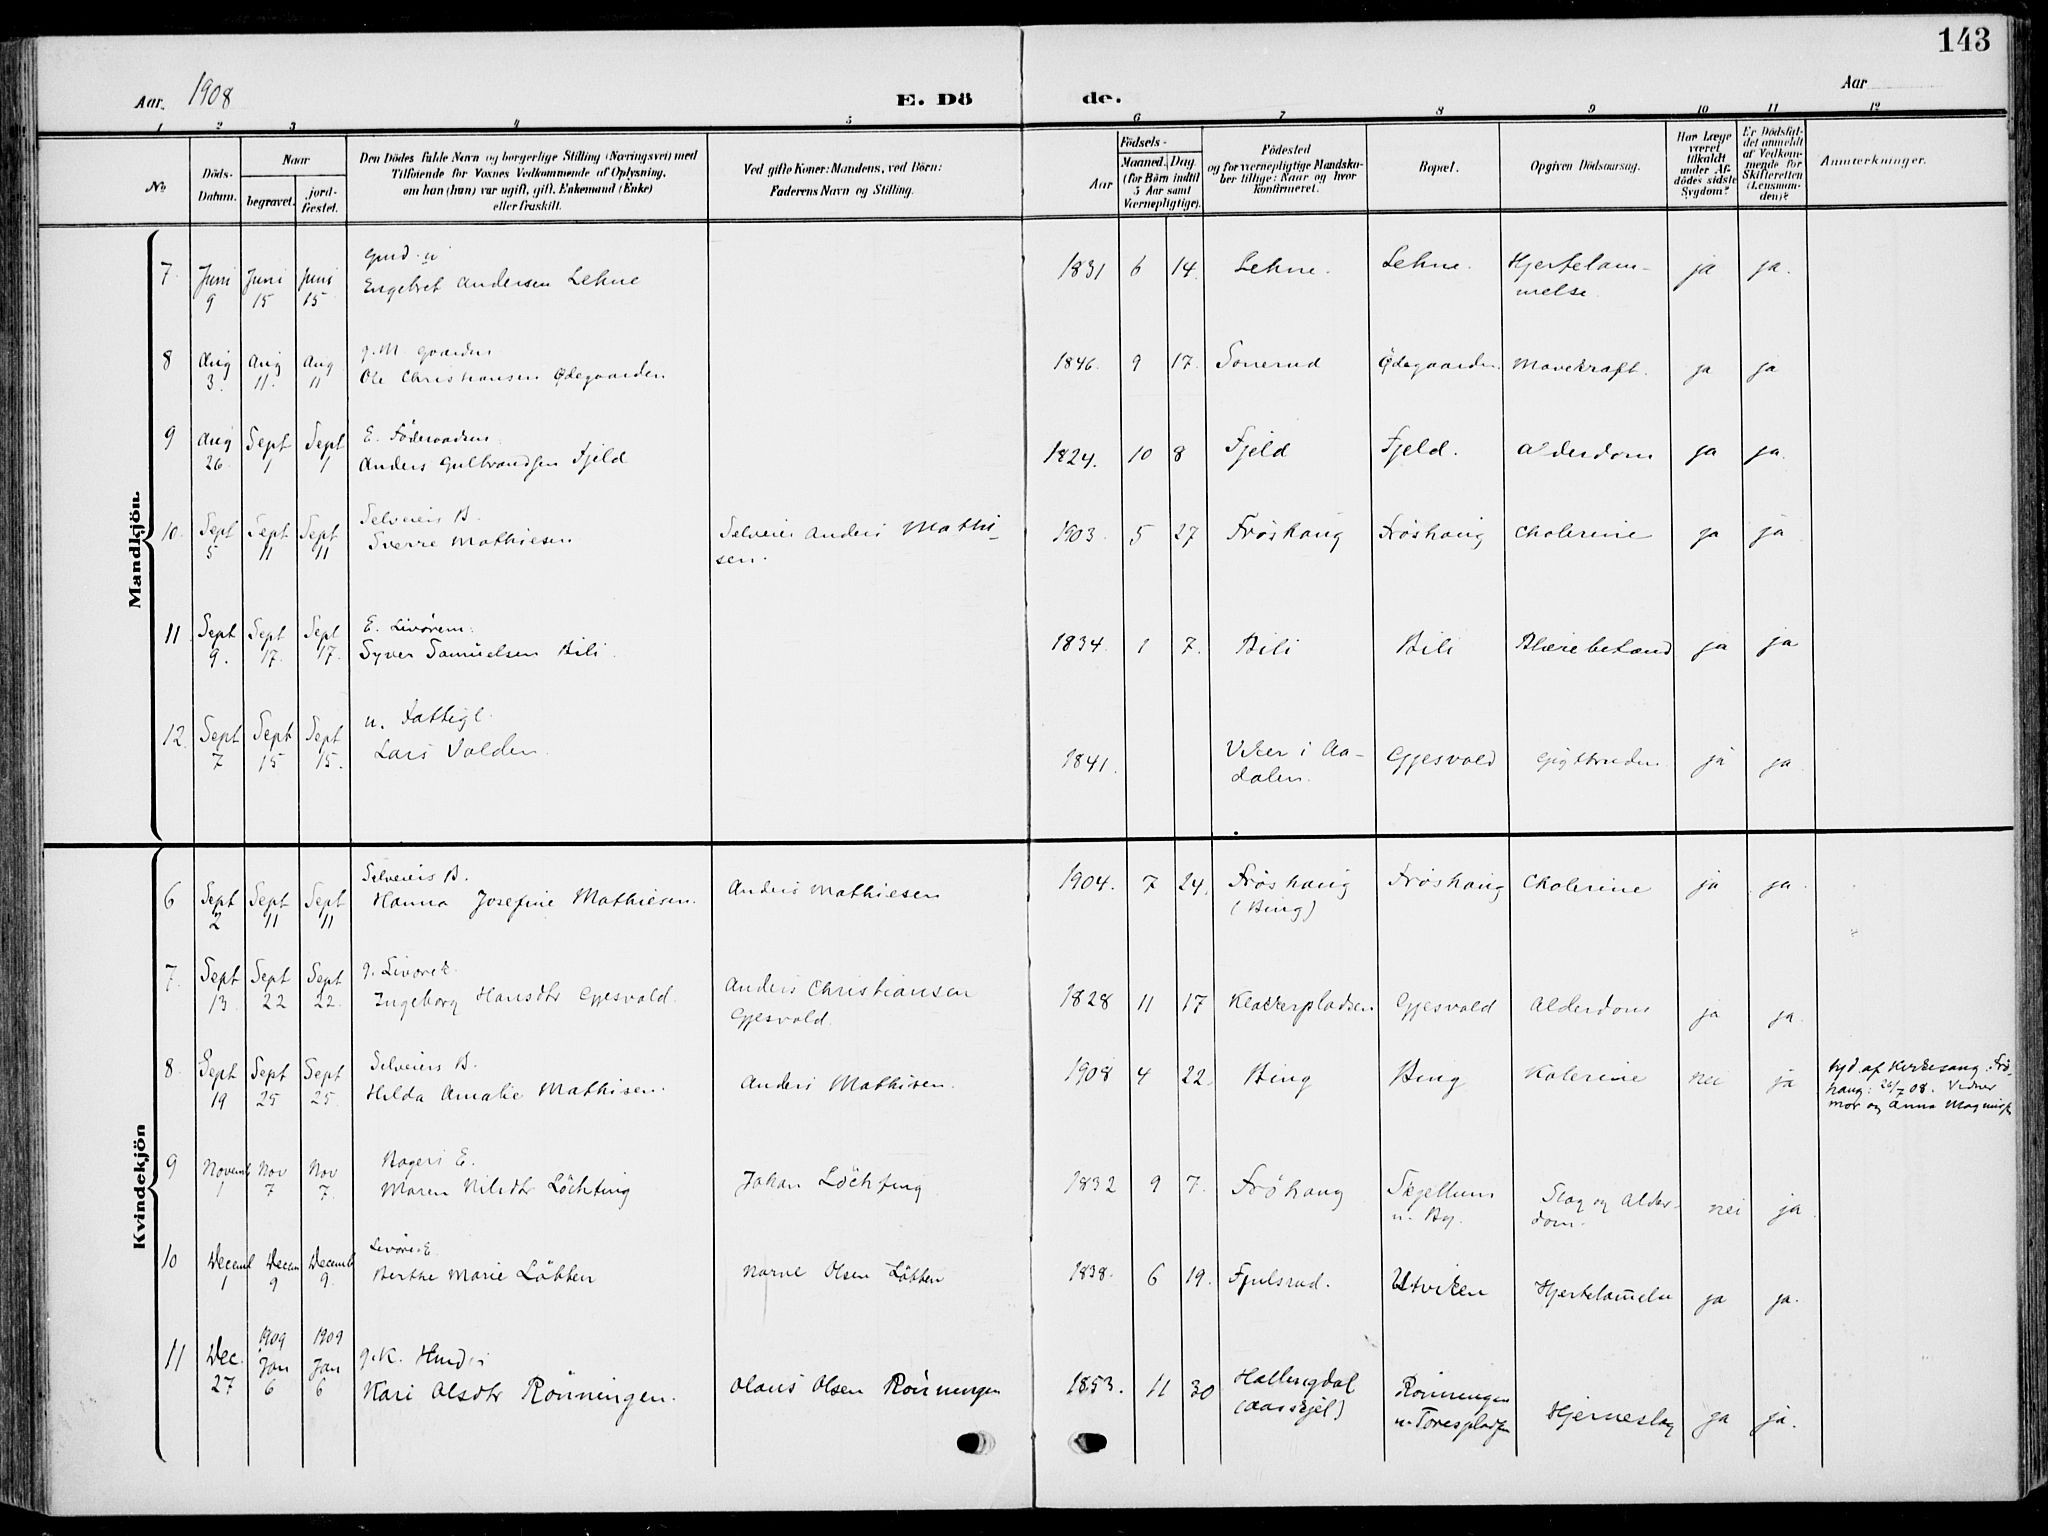 143
Aar 1908
E. Dö
de.
Aar
1 2 3 4 5 6 7 8 9 10 11 12
No
Döds-
Datum.
Naar
begravet.
jord-
fæstet.
Den Dödes fulde Navn og borgerlige Stilling (Næringsvei) med
Tilföiende för Voxnes Vedkommende af Oplysning,
om han (hun) var ugift, gift, Enkemand (Enke)
eller fraskilt.
Ved gifte Koner: Mandens, ved Börn:
Faderens Navn og Stilling.
Födsels-
Aar
Maaned. Dag
(for Börn indtil
5 Aar samt
Værnepligtige).
Födested
og for værnepligtige Mandska-
ber tillige: Naar og hvor
konfirmeret.
Bopæl.
Opgiven Dödsaarsag.
Har Læge
været
tilkaldt
under Af-
dödes sidste
Sygdom?
Er Dödsfal-
det anmeldt
af Vedkom-
mende for
Skifteretten
(Lensman-
den)?
Anmærkninger.
Mandkjön.
7. Juni 9 Juni 15 Juni 15 Engebret Andersen Lehne 1831 6 14. Lehne. Lehne. Hjertelam-
melse. ja ja.
8 Aug 3. Aug 11. Aug 11 g. M. Gaardbr
Ole Christiansen Ødegaarden 1846. 9 17. Sonerud Ødegaarden. Mavekræft. ja ja
9 Aug 26. Sept 1 Sept 1 E. Föderaadsm.
Anders Gulbrandsen Fjeld 1824. 10 8 Fjeld Fjeld. Alderdom ja ja.
10. Sept 5 Sept 11 Sept 11 Selveiers B.
Sverre Mathiesen Selveier Anders Mathi-
sen. 1903. 5 27 Fröshaug Fröshaug Cholerine ja ja
11 Sept 9. Sept 17. Sept 17. E. Livörem.
Syver Samuelsen Bili. 1834. 1 7. Bili Bili Blærebetænd ja ja
12. Sept 7 Sept 15 Sept 15. u. Fattigl.
Lars Valden. 1841. Viker i Aa-
dalen. Gjesvold Gigtbruden ja ja.
Kvindekjön
6 Sept 2 Sept 11 Sept 11 Selveiers B.
Hanna Josefine Mathiesen. Anders Mathiesen 1904. 7 24. Fröshaug
(Bing) Fröshaug Cholerine ja ja.
7. Sept 13. Sept 22 Sept 22. g. Livörek.
Ingeborg Hansdtr Gjesvold. Anders Christiansen
Gjesvold. 1828 11 17 Klækkerpladsen Gjesvold Alderdom ja ja.
8. Sept 19 Sept 25 Sept 25. Selveiers B.
Hilda Amalie Mathisen. Anders Mathisen. 1908 4 22. Bing Bing Kolerine nei ja hjd. af Kirkesang. Frö-
haug: 26/7 08. Vidner
mor og Anna
9 Novemb 1 Nov 7 Nov 7. Bageri E.
Maren Nilsdtr Löchting Johan Löchting 1832 9 7. Fröhaug Skjellum
u. By. Slag og Alder-
dom. nei ja
10 Decemb 1 Decem 9 Decemb 9. Livöre. E.
Berthe Marie Löbben Narve Olsen Löbben 1838. 6 19. Fjulsrud. Utviken Hjertelammelse ja ja.
11 Dec. 27 1909 Jan 6 1909 Jan 6 g. K. Husm.
Kari Olsdtr Rönningen. Olaus Olsen Rönningen 1853. 11 30 Hallingdal
(Aaskjel) Rönningen
u. Toresplads Hjerneslag ja ja.